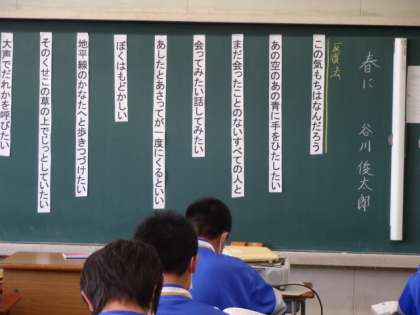 春に
谷川俊太郎
反復法
この気もちはなんだろう
あの空のあの青に手をひたしたい
まだ会ったことのないすべての人と
会ってみたい話してみたい
あしたとあさってが一度にくるといい
ぼくはもどかしい
地平線のかなたへと歩きつづけたい
そのくせこの草の上でじっとしていたい
大声でだれかを呼びたい